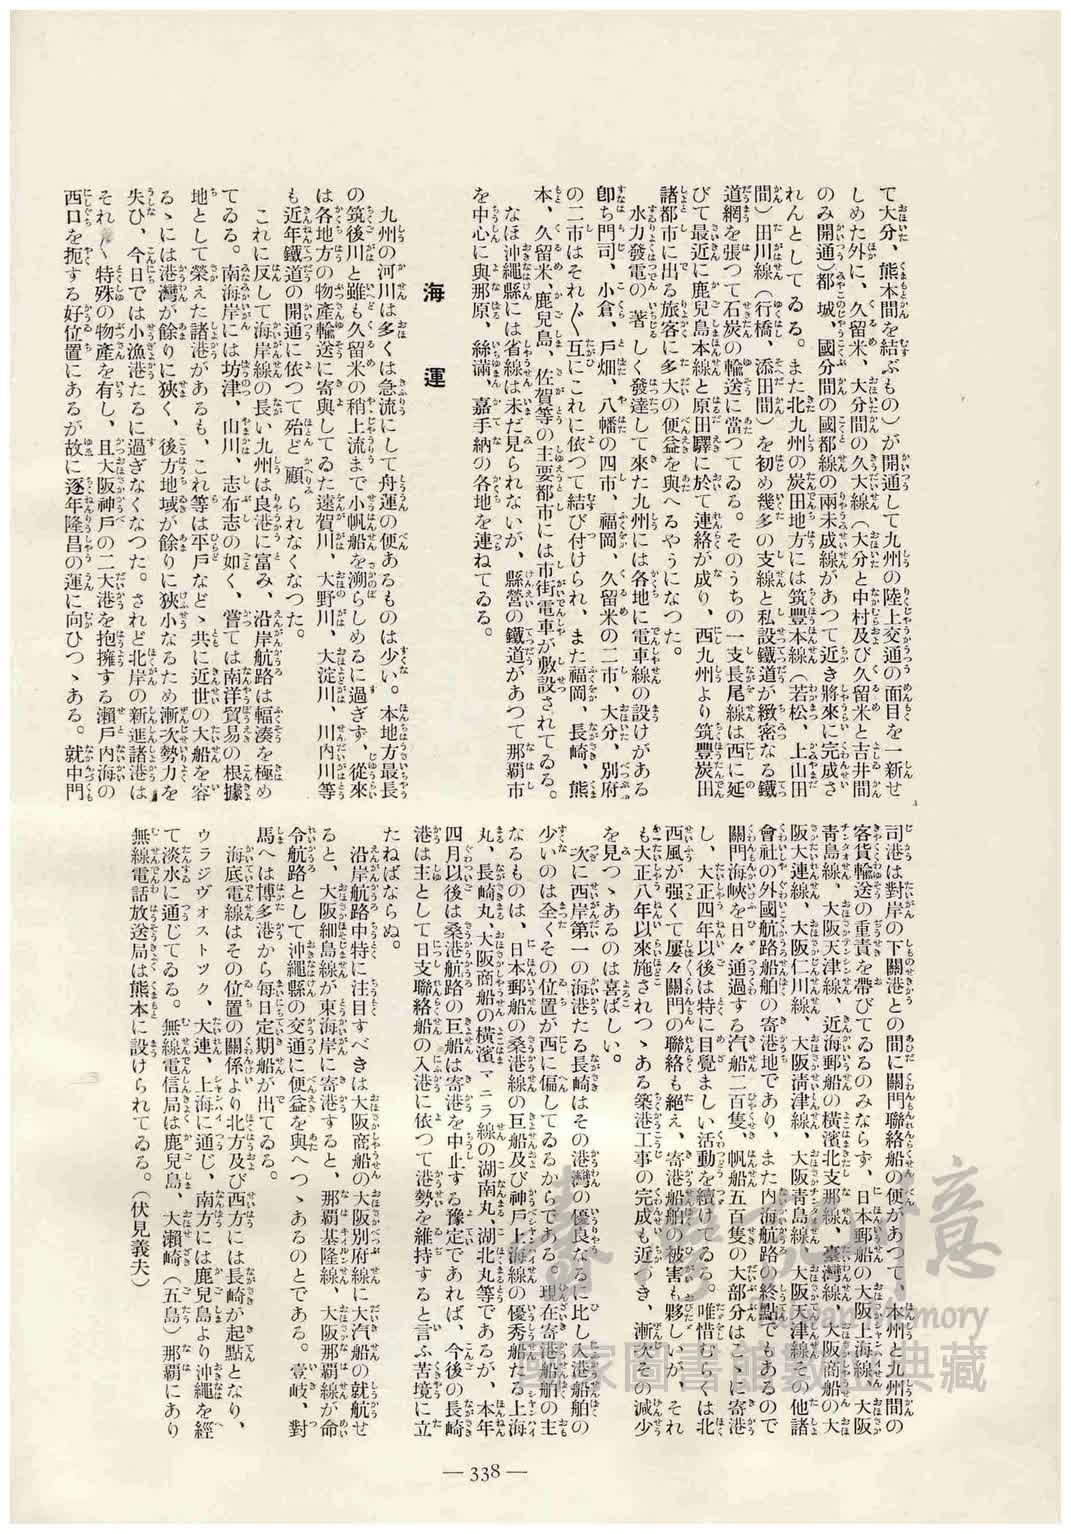 て大分、熊本間を結ぶもの)が開通して九州の陸上交通の面目を一新せ
しめた外に、久留米、大分間の久大線(大分と中村及び久留米と吉井間
のみ開通)都城、國分間の國都線の兩未成線があつて近き將來に完成さ
れんとしてゐる。また北九州の炭田地方には筑豐本線(若松、上山田
間)田川線(行橋、添田間)を初め幾多の支線と私設鐵道が緻密なる鐵
道網を張つて石炭の輸送に當つてゐる。そのうちの一支長尾線は西に延
びて最近に鹿兒島本線と原田驛に於て連絡が成り、西九州より筑豐炭田
諸都市に出る旅客に多大の便益を與へるやうになつた。
水力發電の著しく發達して來た九州には各地に電車線の設けがある
卽ち門司、小倉、戶畑、八幡の四市、福岡、久留米の二市、大分、別府
の二市はそれ〲互にこれに依つて結び付けられ、また福岡、長崎、熊
本、久留米、鹿兒島、佐賀等の主要都市には市街電車が敷設されてゐる。
なほ沖繩縣には省線は未だ見られないが、縣營の鐵道があつて那覇市
を中心に與那原、絲滿、嘉手納の各地を連ねてゐる。
海運
九州の河川は多くは急流にして舟運の便あるものは少い。本地方最長
の筑後川と雖も久留米の稍上流まで小帆船を溯らしめるに過ぎず、從來
は各地方の物產輸送に寄與してゐた遠賀川、大野川、大淀川、川內川等
も近年鐵道の開通に依つて殆ど顧られなくなつた。
これに反して海岸線の長い九州は良港に富み、沿岸航路は輻湊を極め
てゐる。南海岸には坊津、山川、志布志の如く、嘗ては南洋貿易の根據
地として榮えた諸港があるも、これ等は平戶などゝ共に近世の大船を容
るゝには港灣が餘りに狹く、後方地域が餘りに狹小なるため漸次勢力を
失ひ、今日では小漁港たるに過ぎなくなつた。されど北岸の新進諸港は
それ〲特殊の物產を有し、且大阪神戶の二大港を抱擁する瀨戶內海の
西口を扼する好位置にあるが故に逐年隆昌の運に向ひつゝある。就中門
司港は對岸の下關港との間に關門聯絡船の便があつて、本州と九州間の
客貨輸送の重責を帶びてゐるのみならず、日本郵船の大阪上海線、大阪
靑島線、大阪天津線、近海郵船の橫濱北支那線、臺灣線、大阪商船の大
阪大連線、大阪仁川線、大阪淸津線、大阪靑島線、大阪天津線その他諸
會社の外國航路船舶の寄港地であり、また內海航路の終點でもあるので
關門海峽を日々通過する汽船二百隻、帆船五百隻の大部分はこゝに寄港
し、大正四年以後は特に目覺ましい活動を續けてゐる。唯惜むらくは北
西風が强くて屢々關門の聯絡も絕え、寄港船舶の被害も夥しいが、それ
も大正八年以來施されつゝある築港工事の完成も近づき、漸次その減少
を見つゝあるのは喜ばしい。
次に西岸第一の海港たる長崎はその港灣の優良なるに比し入港船舶の
少いのは全くその位置が西に偏してゐるからである。現在寄港船舶の主
なるものは、日本郵船の桑港線の巨船及び神戶上海線の優秀船たる上海
丸、長崎丸、大阪商船の橫濱マニラ線の湖南丸、湖北丸等であるが、本年
四月以後は桑港航路の巨船は寄港を中止する豫定であれば、今後の長崎
港は主として日支聯絡船の入港に依つて港勢を維持すると言ふ苦境に立
たねばならぬ。
沿岸航路中特に注目すべきは大阪商船の大阪別府線に大汽船の就航せ
ると、大阪細島線が東海岸に寄港すると、那覇基隆線、大阪那覇線が命
令航路として沖繩縣の交通に便益を與へつゝあるのとである。壹岐、對
馬へは博多港から每日定期船が出てゐる。
海底電線はその位置の關係より北方及び西方には長崎が起點となり、
ウラジヴォストック、大連、上海に通じ、南方には鹿兒島より沖繩を經
て淡水に通じてゐる。無線電信局は鹿兒島、大瀨崎(五島)那覇にあり
無線電話放送局は熊本に設けられてゐる。(伏見義夫)
— 338 —
臺灣記憶
Taiwan Memory
國家圖書館數位典藏